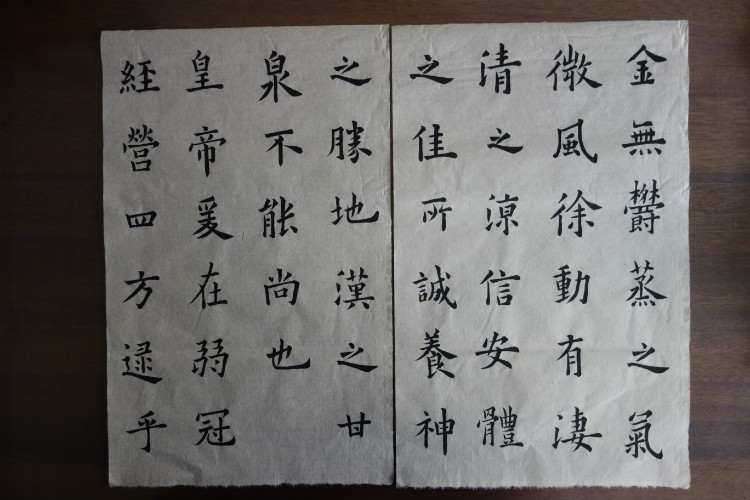 金無鬱蒸之氣
微風徐動有淒
清之涼信安體
之佳所誠養神
之勝地漢之甘
泉不能尚也
皇帝爰在弱冠
經營四方逮乎